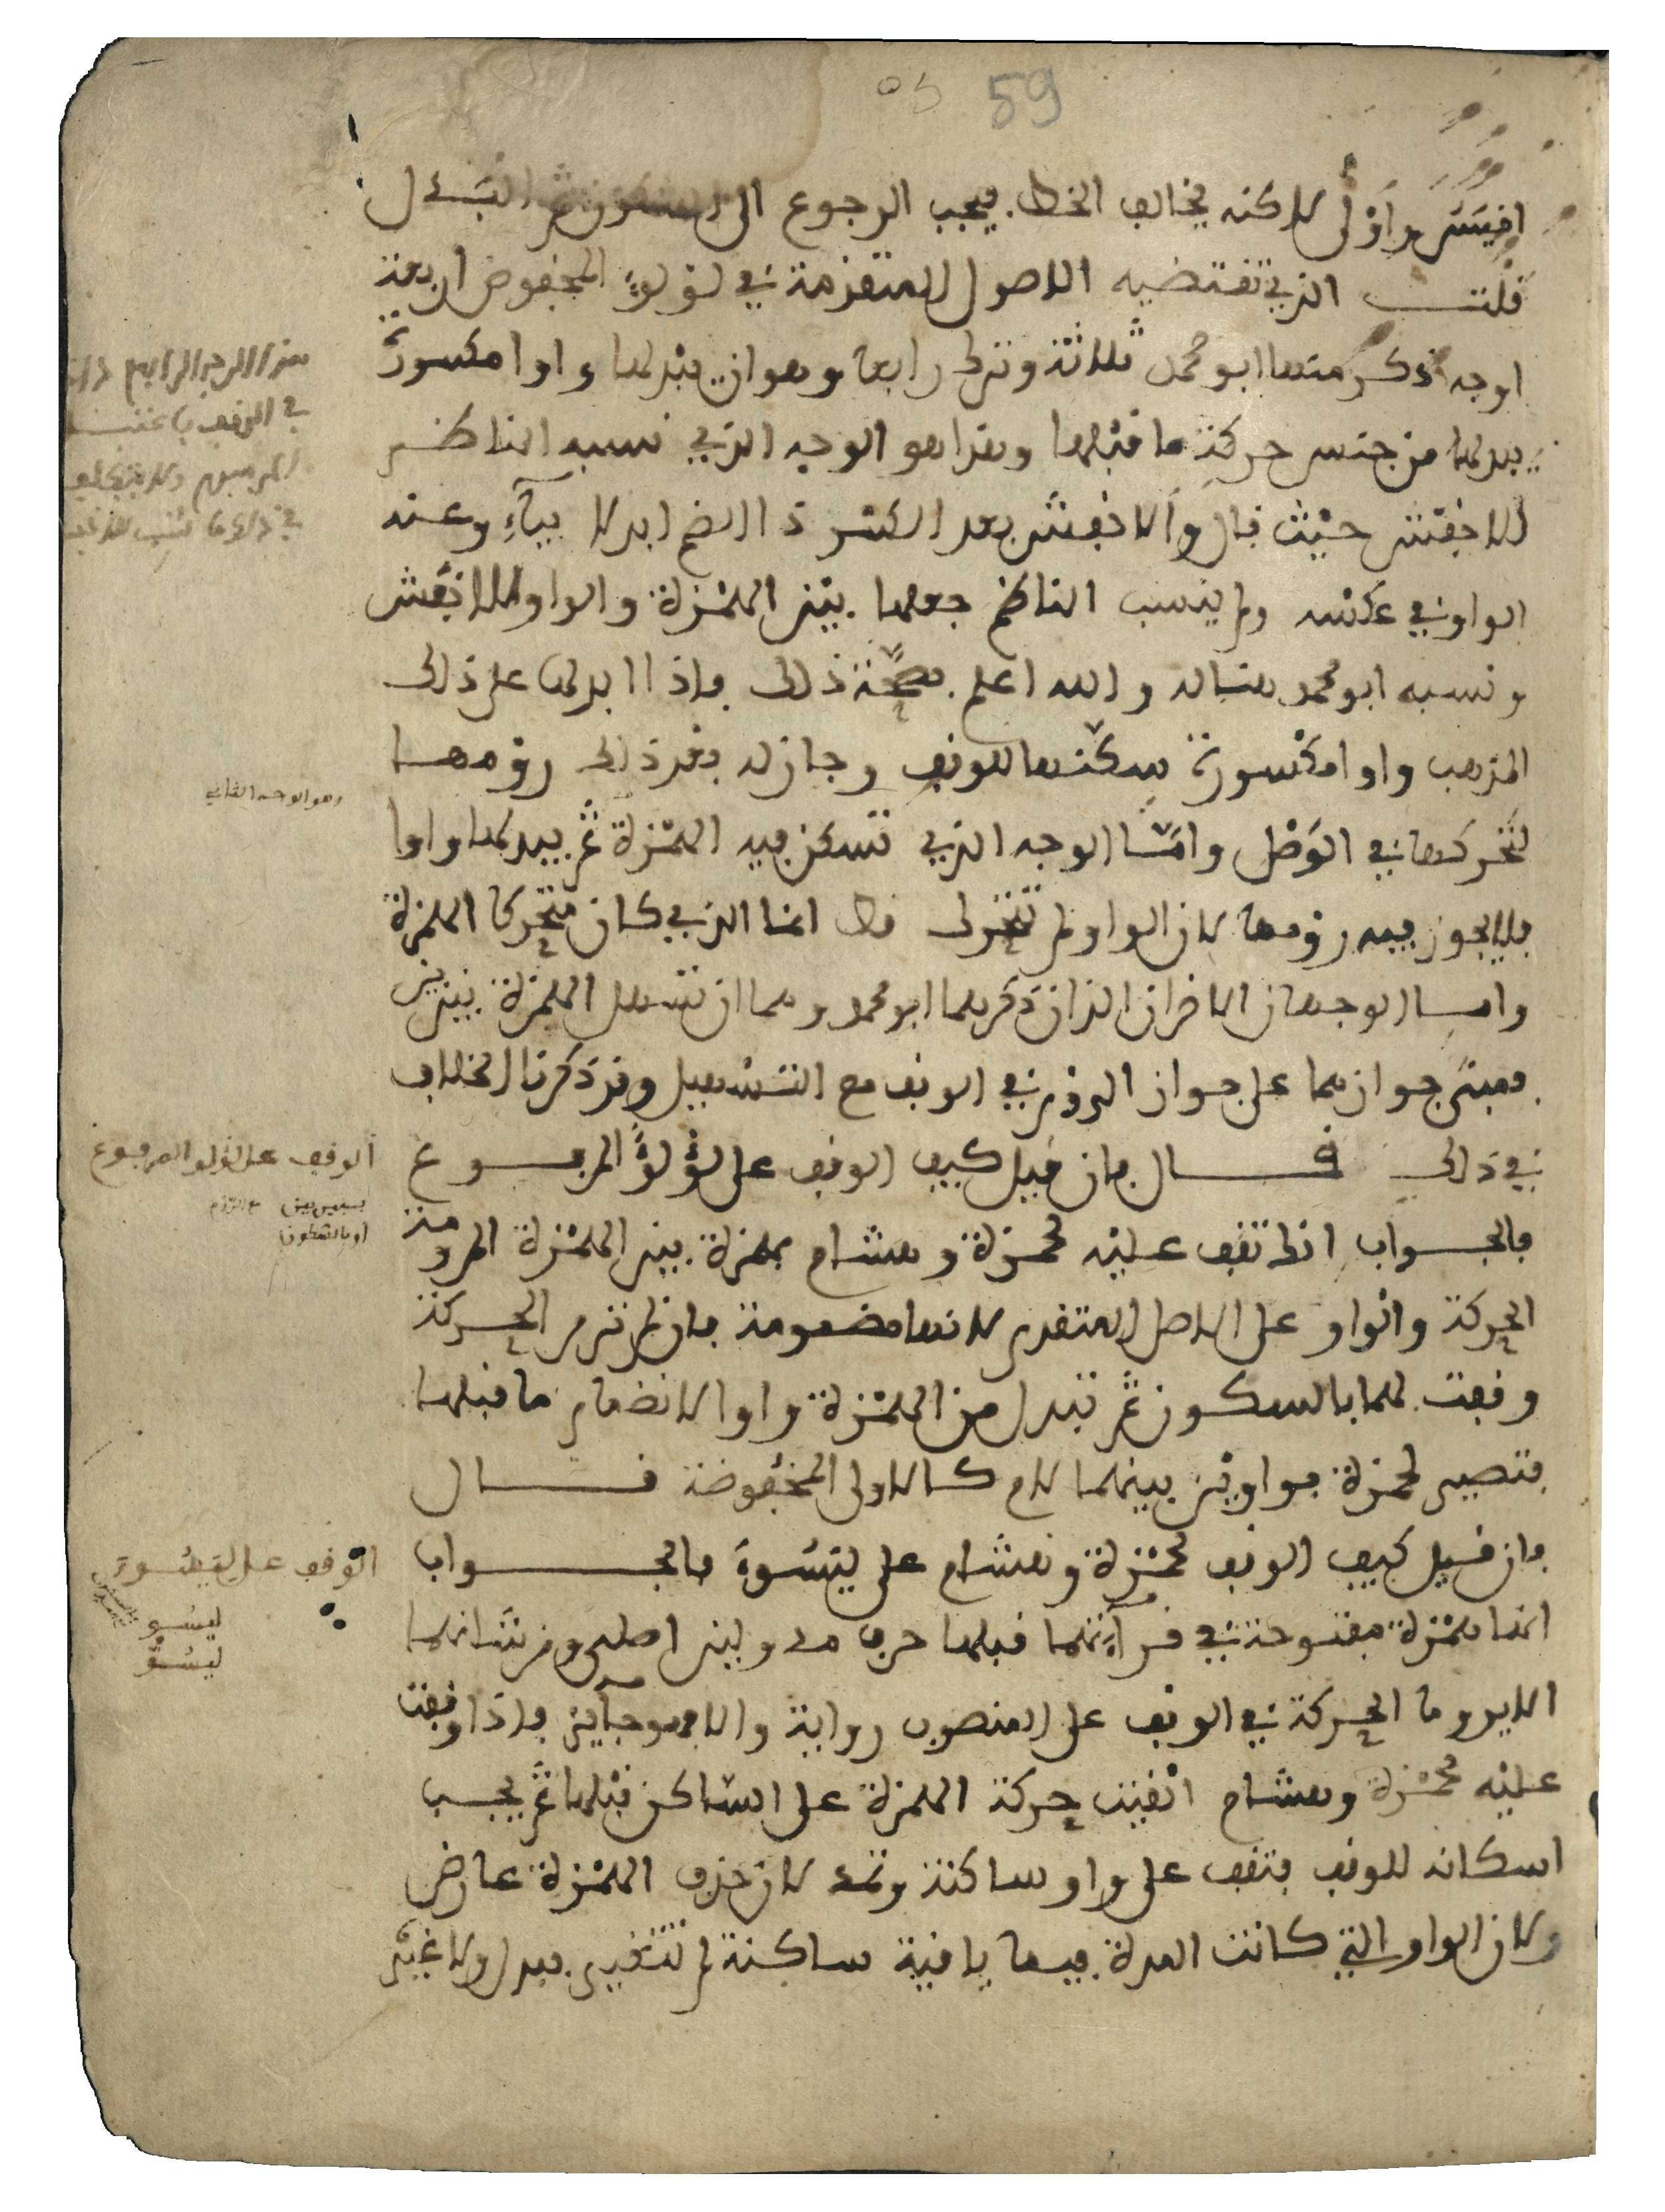 59
اقيس واولى لاكنه يخالف الخط فيجب الرجوع الى السكون ثم البدل
قلت الذي تقتضيه الاصول المتقدمة في لؤلؤٍ المخفوض اربعة
اوجه ذكر منها ابو محمد ثلاثة وترك رابعا وهو ان يبدلها واوا مكسورة
يبدلها من جنس حركة ما قبلها وهذا هو الوجه الذي نسبه الناظم
للاخفش حيث قال والاخفش بعد الكسر ذا الضم ابدلا بياءٍ وعنه
الواو في عكسه ولم ينسب الناظم جعلها بين الهمزة والواو للاخفش
ونسبه ابو محمد هنا له والله اعلم بصحة ذلك فاذا ابدلها على ذلك
المذهب واوا مكسورة سكنها للوقف وجاز له بعد ذلك رومها
لتحركها في الوصل وامّا الوجه الذي تسكن فيه الهمزة ثم يبدلها واوا
فلا يجوز فيه رومها لان الواو لم تتحرك قط انما الذي كان متحركا الهمزة
وامّا الوجهان الاخران الذان ذكرهما ابو محمد وهما ان تسهل الهمزة بين بين
فمبنى جوازهما على جواز الروم في الوقف مع التسهيل وقد ذكرنا الخلاف
في ذلك قال فان قيل كيف الوقف على لؤلؤٌ المرفوع
فالجواب انك تقف عليه لحمزة وهشام بهمزة بين الهمزة المرومة
الحركة والواو على الاصل المتقدم لانها مضمومة فان لم ترم الحركة
وقفت لهما بالسكون ثم تبدل من الهمزة واوا لانضمام ما قبلها
فتصير لحمزة بواوين بينهما لام كالاولى المخفوضة قال
فان قيل كيف الوقف لحمزة وهشام على ليسوءَ فالجواب
انها همزة مفتوحة في قرآءتهما قبلها حرف مد ولين اصلي ومن شانهما
الا يروما الحركة في الوقف على المنصوب رواية والا فهو جآئز فاذا وقفت
عليه لحمزة وهشام القيت حركة الهمزة على الساكن قبلها ثم يجب
اسكانه للوقف فتقف على واو ساكنة وتمد لان حذف الهمزة عارض
ولان الواو التي كانت المدة فيها باقية ساكنة لم تتغير ببدل ولا غيره
هذا الوجه الرابع
في الوقف
وهو الوجه الثاني
الوقف على لؤلؤ المرفوع
بتسهيل بين مع الروم
او بالسكون
الوقف على ليسوء
ليسو
ليسوّ